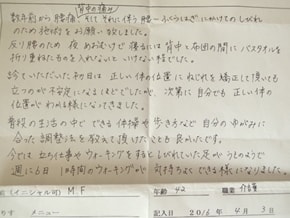 背中の痛み
数年前から腰痛、そしてそれに伴う腰〜ふくらはぎにかけてのしびれ
のため施術をお願い致しました。
反り腰のため 夜 あおむけで 寝るには 背中と布団の間に バスタオルを
折り重ねたものを入れないと いけない程でした。
診ていただいた初日は 正しい体の位置に ねじれを矯正して頂いても
立つのが不安定になるほどでしたが、次第に自分でも正しい体の
位置がわかる様になってきました。
普段の生活の中でできる体操や歩き方など 自分のゆがみに
合った調整法を教えて頂けたことも良かったです。
今では立ち仕事やウォーキングをするとしびれていた足がうそのようで
週に6日 1時間のウォーキングが 気持ちよくできる様になりました。
(イニシャル可) M.F 年齢 42 職業 介護
メニュー 記入日 2016年 4月 3日